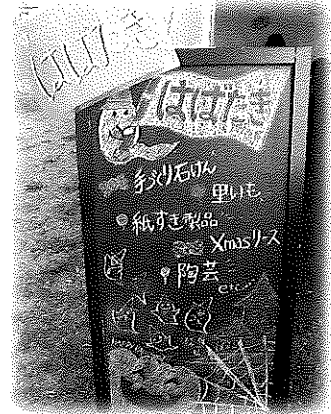 はばたき
はばたき
手づくり石けん
里いも
紙すき製品
Xmasリース
陶芸
etc...